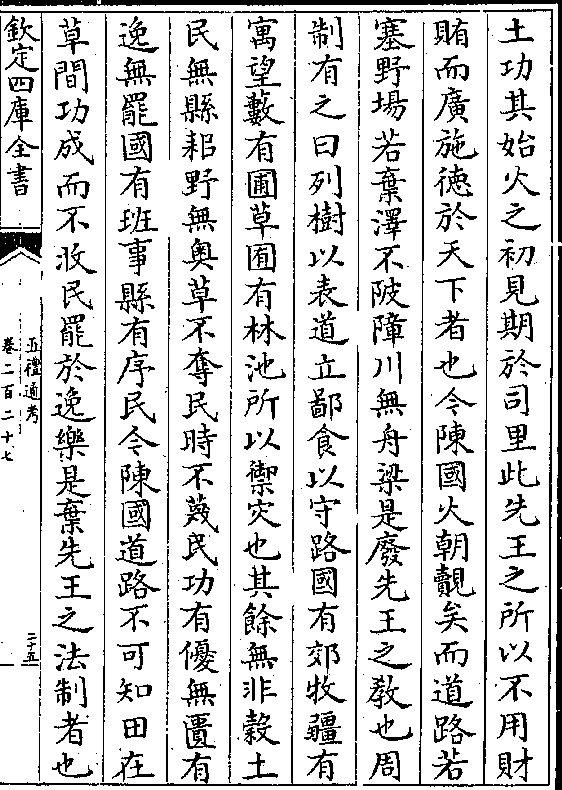 土功其始火之初見期於司里此先王之所以不用財
賄而廣施徳於天下者也今陳國火朝覿矣而道路若
塞野場若棄澤不陂障川無舟梁是廢先王之教也周
制有之曰列樹以表道立鄙食以守路國有郊牧疆有
寓望藪有圃草囿有林池所以禦灾也其餘無非穀土
民無縣耜野無奥草不奪民時不蔑民功有優無匱有
逸無罷國有班事縣有序民今陳國道路不可知田在
草間功成而不收民罷於逸樂是棄先王之法制者也
欽定四庫全書
五禮通考
卷二百二十七
二十五